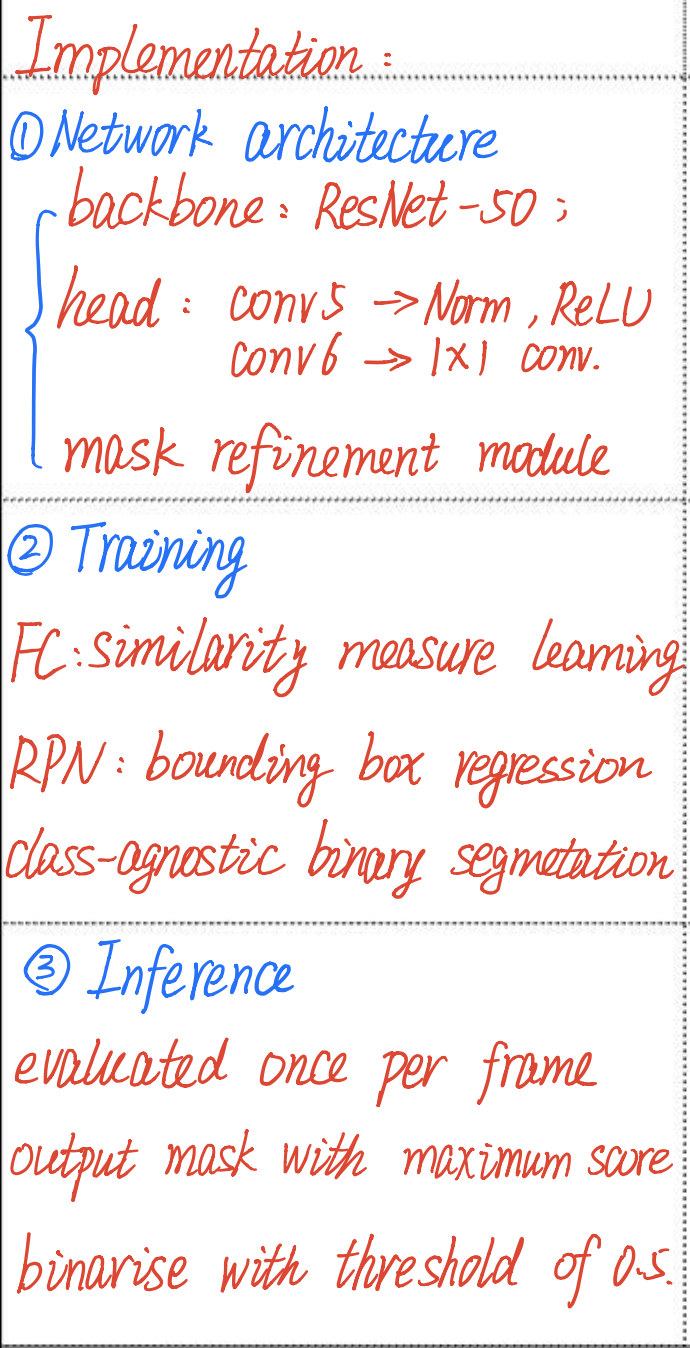 Implementation :
① Network architecture
backbone : ResNet-50 ;
head : conv5 → Norm , ReLU
conv6 → 1×1 conv.
mask refinement module
② Training
FC : similarity measure learning
RPN : bounding box regression
class-agnostic binary segmetation
③ Inference
evaluated once per frame
output mask with maximum score
binarise with threshold of 0.5.